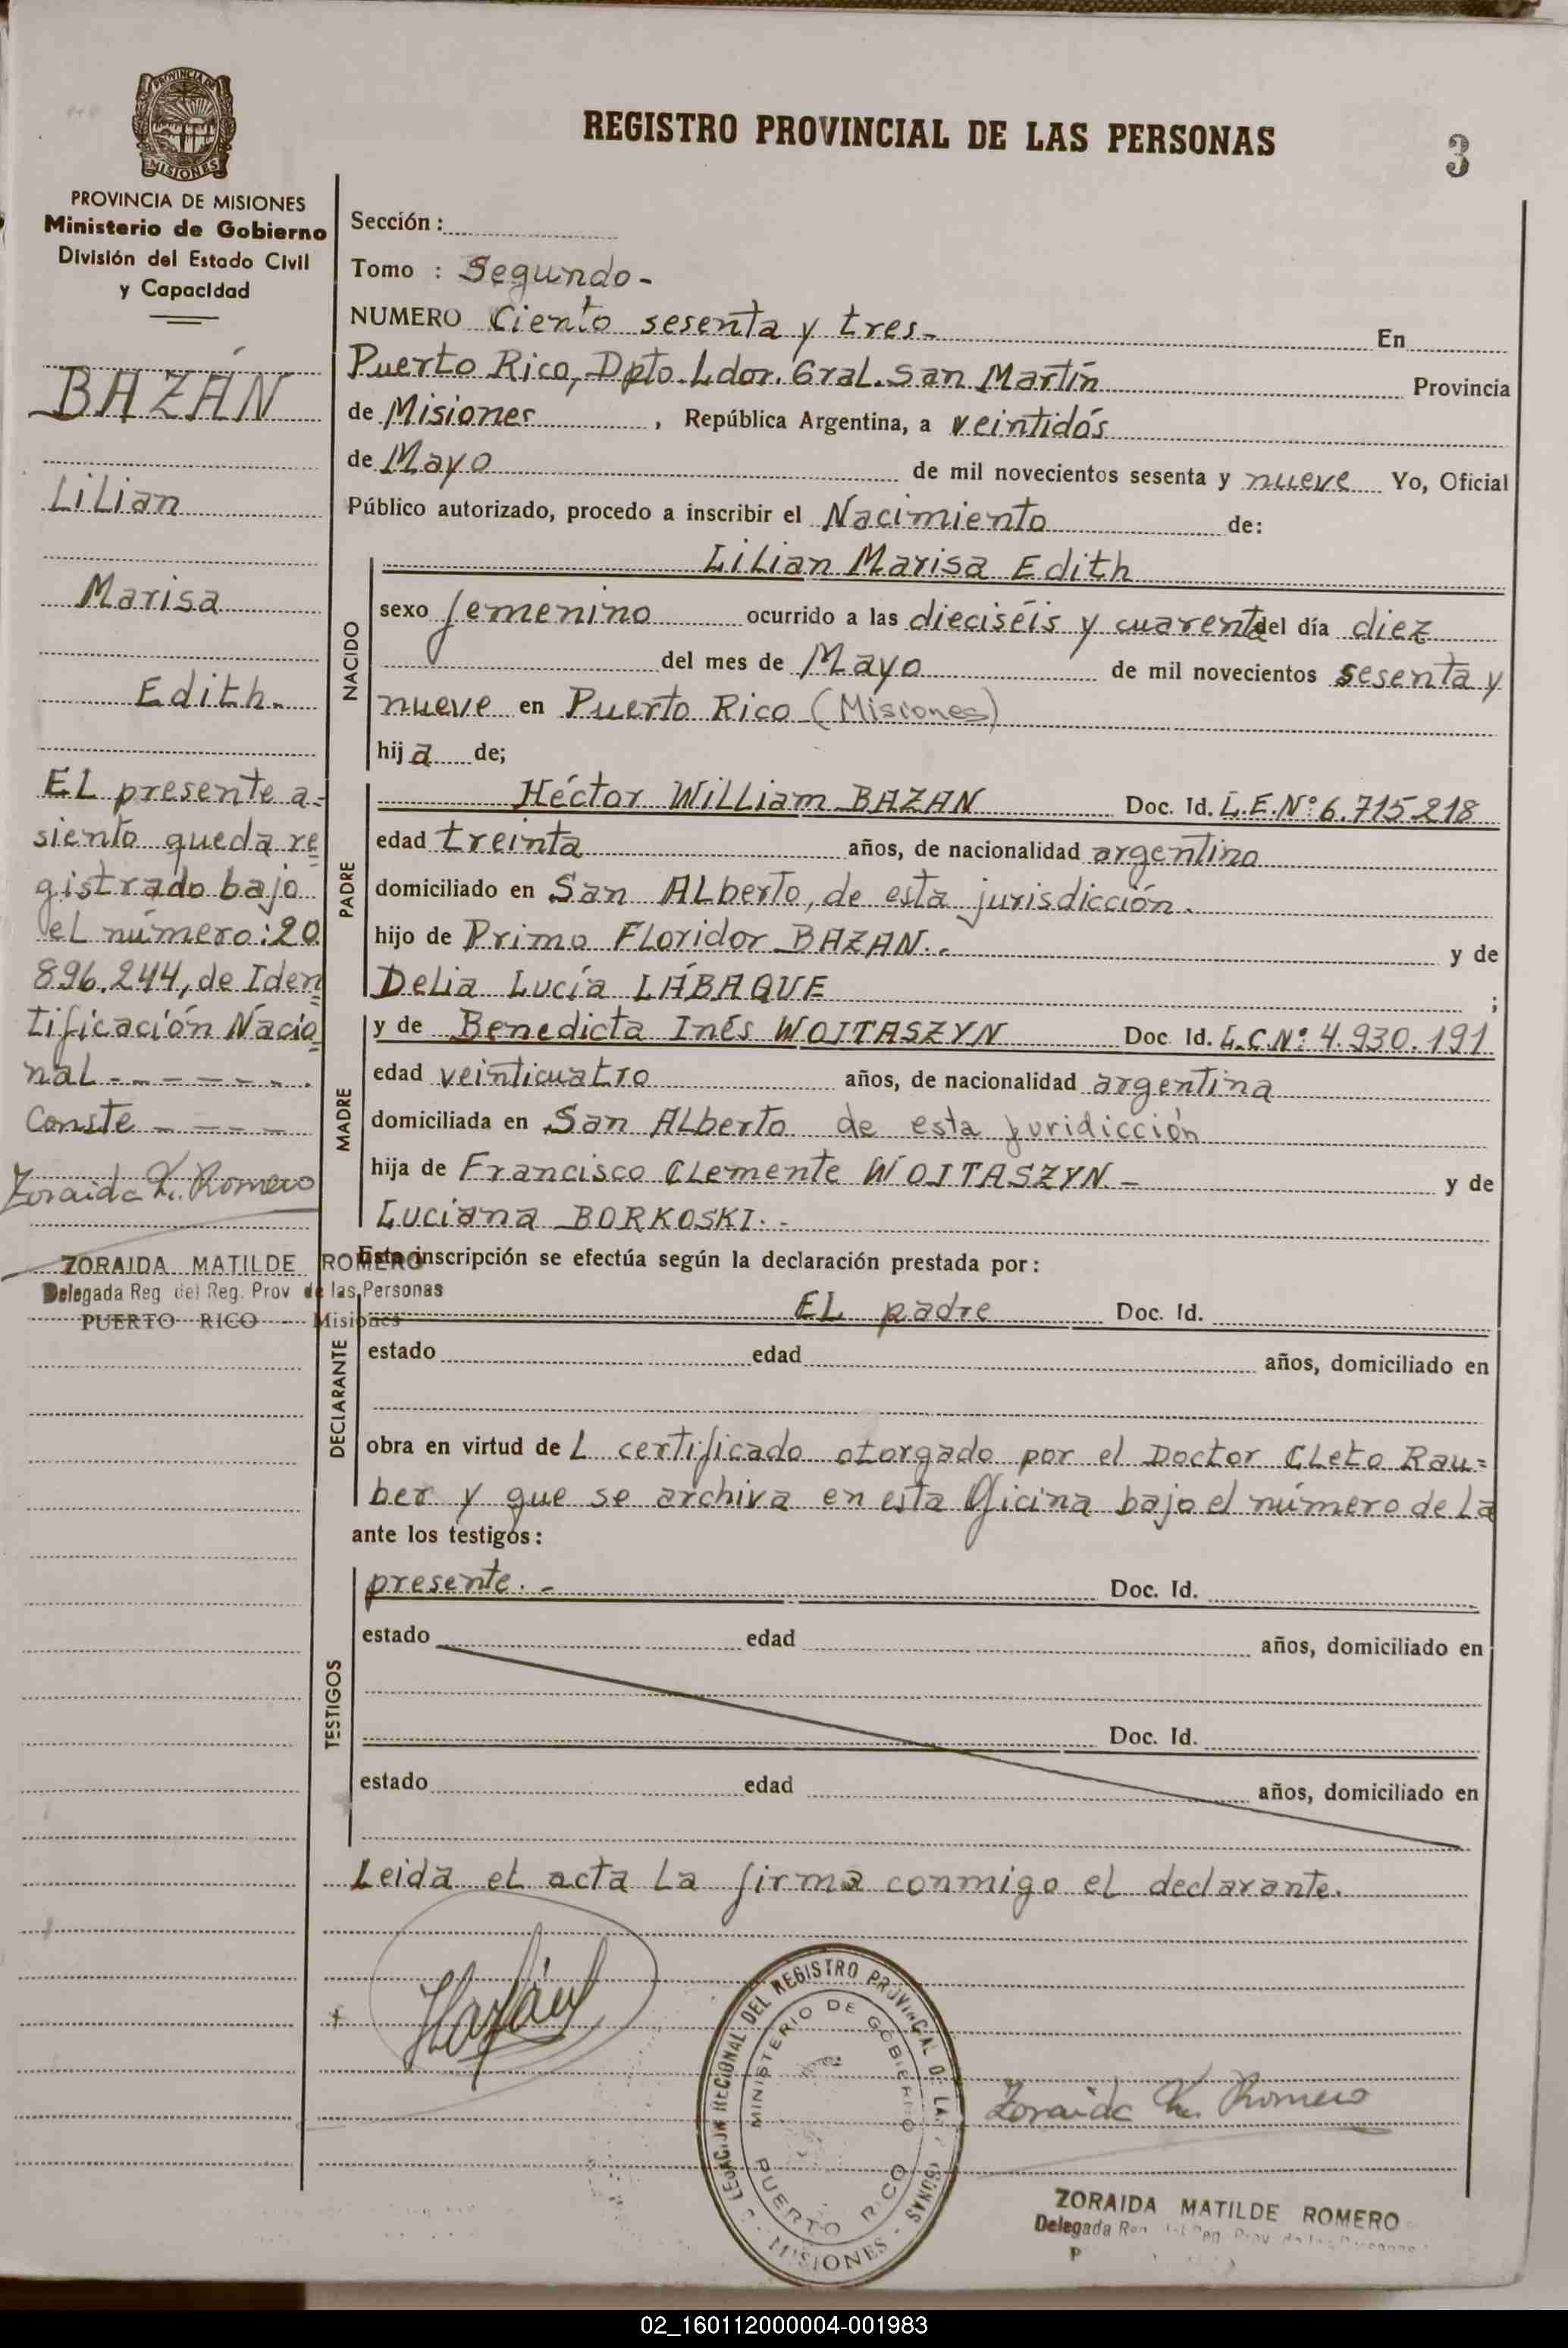 REGISTRO PROVINCIAL DE LAS PERSONAS
3
PROVINCIA DE MISIONES
MISIONES
PROVINCIA DE MISIONES
Ministerio de Gobierno
División del Estado Civil
y Capacidad
BAZÁN
Lilian
Marisa
Edith.
EL presente a=
siento queda re=
gistrado bajo
el número: 20
896.244, de Iden=
tificación Nacio=
nal - - - - - .
Conste - - - -
Zoraida M. Romero
ZORAIDA MATILDE ROMERO
Delegada Reg del Reg. Prov de las Personas
PUERTO RICO - Misiones
Sección:
Tomo : Segundo-
NUMERO Ciento sesenta y tres- En
Puerto Rico, Dpto. Ldor. Gral. San Martín Provincia
de Misiones , República Argentina, a veintidós
de Mayo de mil novecientos sesenta y nueve Yo, Oficial
Público autorizado, procedo a inscribir el Nacimiento de:
NACIDO
Lilian Marisa Edith
sexo femenino ocurrido a las dieciséis y cuarenta del día diez
del mes de Mayo de mil novecientos sesenta y
nueve en Puerto Rico (Misiones)
hija de;
PADRE
Héctor William BAZAN Doc. Id. L.E.Nº 6.715218
edad treinta años, de nacionalidad argentino
domiciliado en San ALberto, de esta jurisdicción.
hijo de Primo Floridor BAZAN.- y de
Delia Lucía LÁBAQUE ;
MADRE
y de Benedicta Inés WOITASZYN Doc. Id. L.C.Nº 4.930.191
edad veinticuatro años, de nacionalidad argentina
domiciliada en San ALberto de esta juridicción
hija de Francisco CLemente WOJTASZYN.- y de
Luciana BORKOSKI.-
Esta inscripción se efectúa según la declaración prestada por:
DECLARANTE
EL padre Doc. Id.
estado edad años, domiciliado en
obra en virtud de L certificado otorgado por el Doctor CLeto Rau=
ber y que se archiva en esta Oficina bajo el número de La
ante los testigos:
TESTIGOS
presente.- Doc. Id.
estado edad años, domiciliado en
Doc. Id.
estado edad años, domiciliado en
Leida el acta La firma conmigo el declarante.
HBazán
DELEGACION REGIONAL DEL REGISTRO PROVINCIAL DE LAS PERSONAS - MISIONES -
MINISTERIO DE GOBIERNO
PUERTO RICO
Zoraida M. Romero
ZORAIDA MATILDE ROMERO
Delegada Reg. del Reg. Prov. de las Personas
02_160112000004-001983